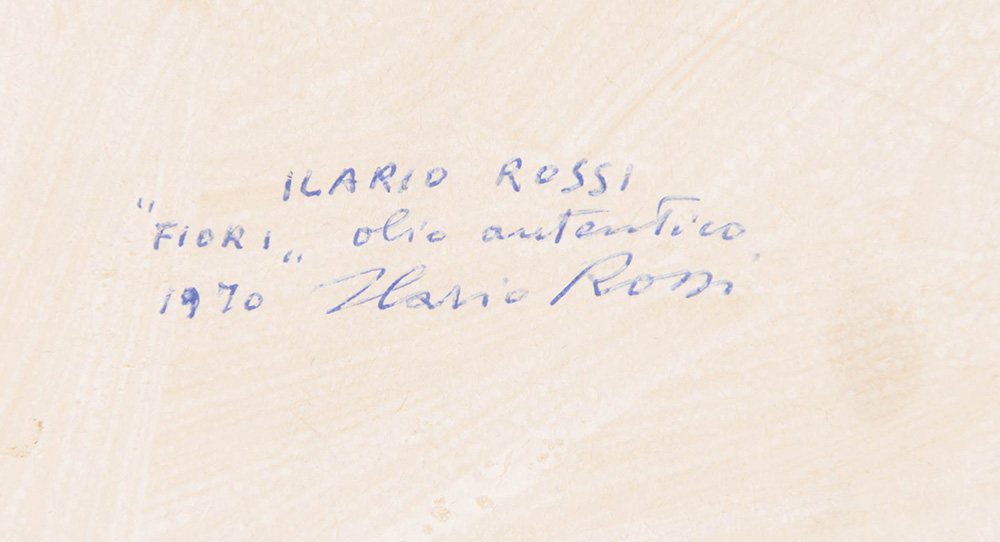 ILARIO ROSSI
"FIORI„ olio autentico
1970 Ilario Rossi